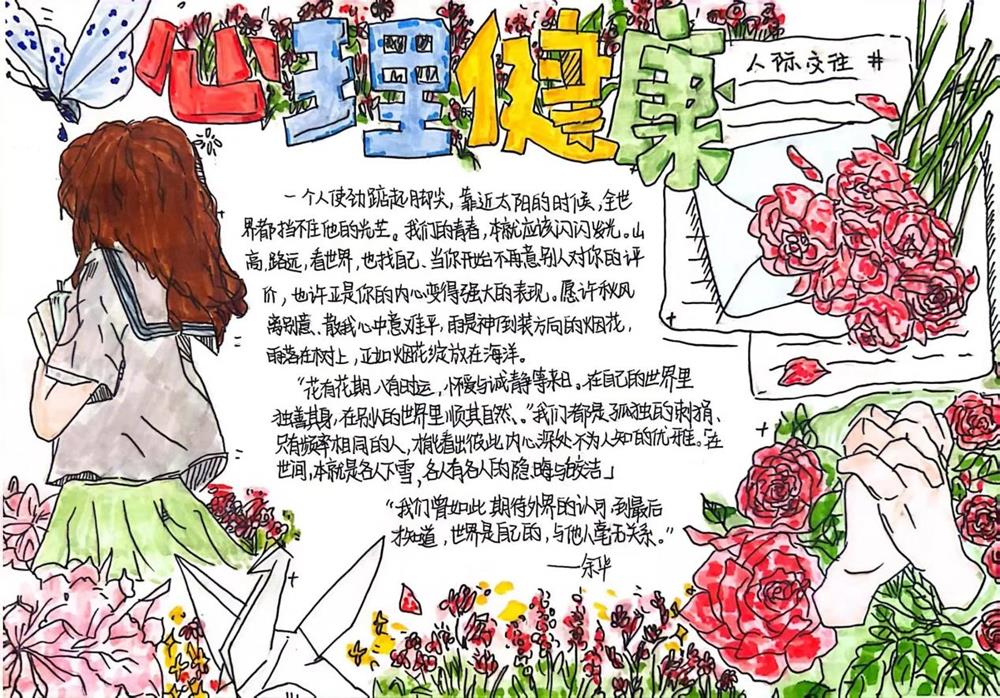 心理健康
人际交往 #
一个人使劲踮起脚尖，靠近太阳的时候，全世
界都挡不住他的光芒。我们的青春，本就应该闪闪发光。山
高，路远，看世界，也找自己、当你开始不再意别人对你的评
价，也许正是你的内心变得强大的表现。愿许秋风
离别意、散我心中意难平，雨是神打到装方向的烟花，
雨落在树上，正如烟花绽放在海洋。
“花有花期人有时运，怀爱与诚静等来日。在自己的世界里
独善其身，在别人的世界里顺其自然、“我们都是孤独的刺猬、
只有频率相同的人，才能看出彼此内心深处不为人知的优雅。「在
世间，本就是各人下雪，各人有各人的隐晦与皎洁」
“我们曾如此期待外界的认同，到最后
才知道，世界是自己的，与他人毫无关系。”
——余华